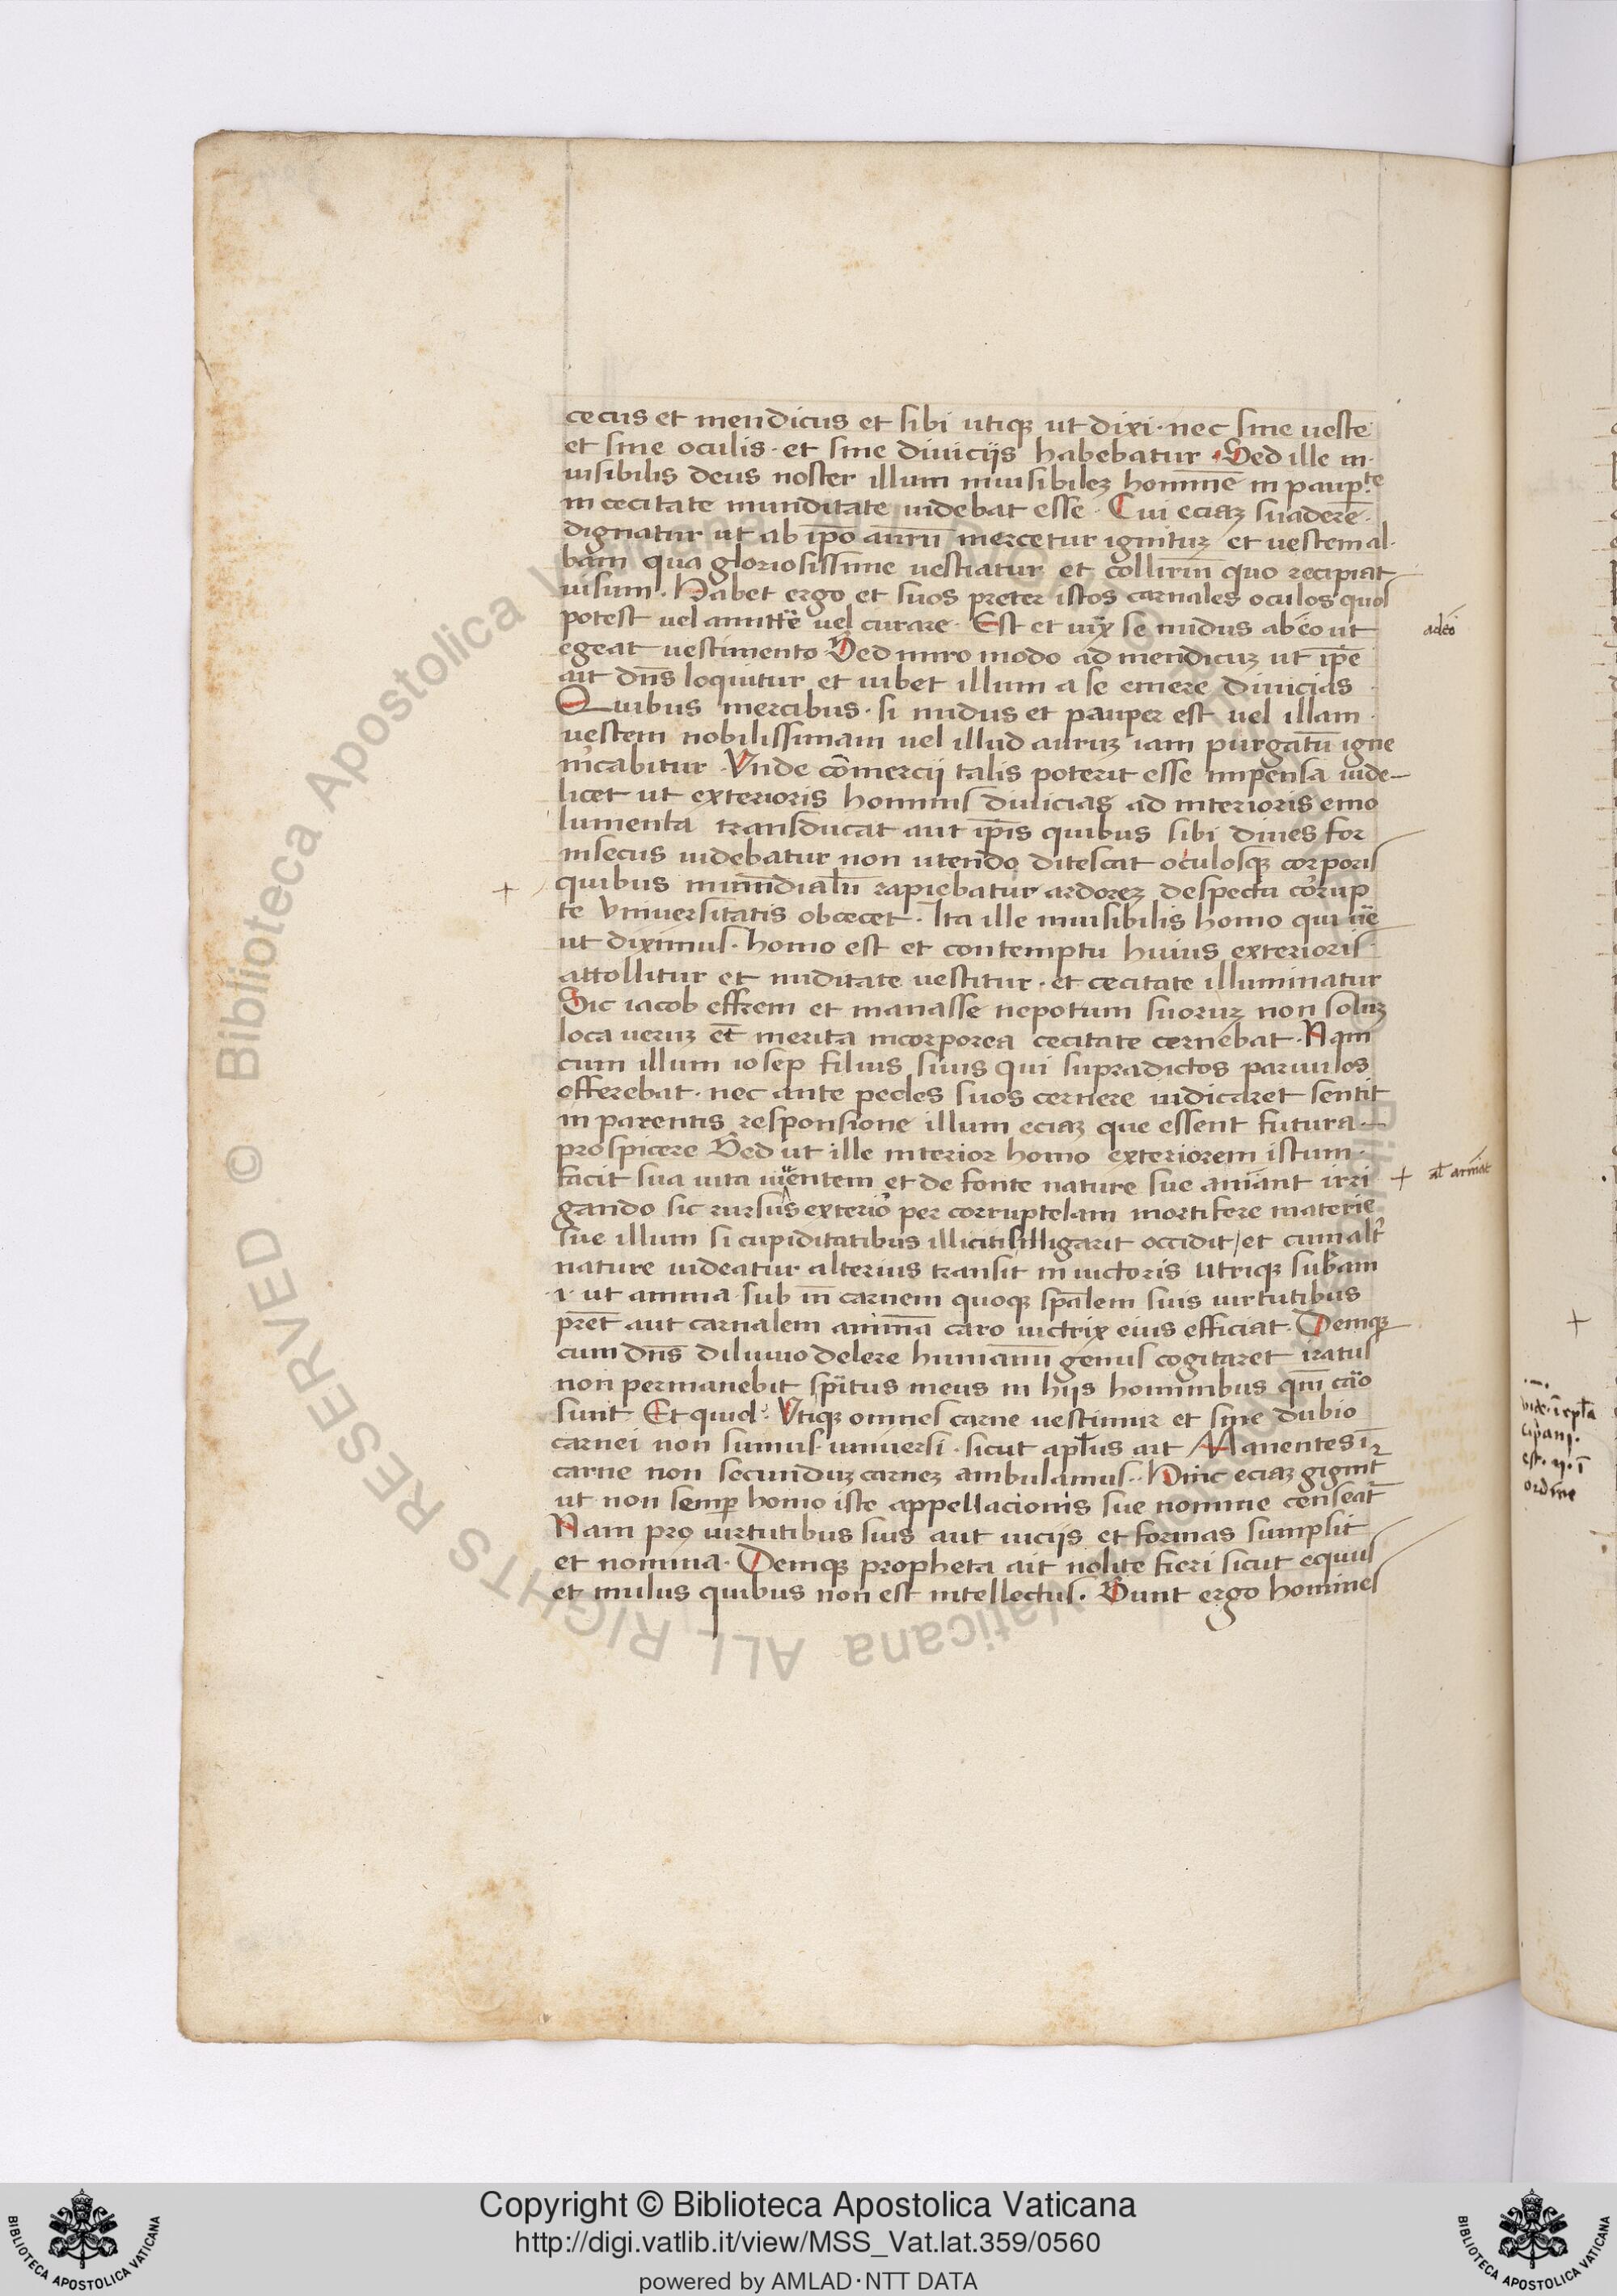 cecus et mendicus et sibi utiqꝫ ut dixi · nec sine ueste
et sine oculis · et sine diuiciis habebatur · Sed ille in·
uisibilis deus noster illum inuisibileꝫ hominē in paup̱te
in cecitate nuditate uidebat esse · Cui eciaꝫ suadere ·
dignatur ut ab ip̄o aurū mercetur ignituꝫ et uestem al·
bam qua gloriosissime uestiatur et collirīn quo recipiat
uisum · Habet ergo et suos preter istos carnales oculos quos
potest uel amitt̄e uel curare · Est et uix se nudus ab eo ut
adeo
egeat uestimento Sed miro modo ad mendicuꝫ ut ip̄e
ait dn̄s loquitur et iubet illum a se emere diuicias ·
Quibus mercibus · si nudus et pauper est uel illam ·
uestem nobilissimam uel illud auruꝫ iam purgatū igne
m̄cabitur · Vnde cōmercii talis poterit esse impensa uide-
licet ut exterioris hominis diuicias ad interioris emo
lumenta transducat aut ip̄is quibus sibi diues for
insecus uidebatur non utendo ditescat oculosqꝫ corporis
+ quibus mundialiū rapiebatur ardoreꝫ despecta corrup
te vniuersitatis obcecet · Ita ille inuisibilis homo qui uē
ut diximus · homo est et contemptu huius exterioris ·
attollitur et nuditate uestitur · et cecitate illuminatur
Sic iacob effrem et manasse nepotum suoruꝫ non soluꝫ
loca ueruꝫ et̄ merita incorporea cecitate cernebat · Nam
cum illum iosep filius suus qui supradictos paruulos
offerebat · nec ante pedes suos cernere iudicaret sentit
in parentis responsione illum eciaꝫ que essent futura
prospicere Sed ut ille interior homo exteriorem istum ·
facit sua uita uiuentem et de fonte nature sue aniānt irri + al̄ animat
gando sic rursus exterior per corruptelam mortifere materie
sue illum si cupiditatibus illicitis illigarit occidit / et cum altr̄
nature uideatur alterius transit in uictoris utriqꝫ sub̄am
·i· ut anima sub in̄ carnem quoqꝫ sp̄alem suis uirtutibus
pre̅t aut carnalem animā caro uictrix eius efficiat · Deniqꝫ
cum dn̄s diluuio delere humanū genus cogitaret iratus
non permanebit sp̄itus meus in hiis hominibus qm̄ caro
sunt · Et quid · Vtiqꝫ omnes carne uestimur et sine dubio
carnei non sumus · uniuersi · sicut apl̄us ait Manentes in
carne non secunduꝫ carneꝫ ambulamus · Hinc eciaꝫ gignit̄
ut non semp̱ homo iste appellacionis sue nomine censeat̄
Nam pro uirtutibus suis aut uiciis et formas sumpsit
et nomina · Deniqꝫ propheta ait nolite fieri sicut equus
et mulus quibus non est intellectus · Sunt ergo homines
+
ordine
Copyright © Biblioteca Apostolica Vaticana
http://digi.vatlib.it/view/MSS_Vat.lat.359/0560
powered by AMLAD·NTT DATA
BIBLIOTECA APOSTOLICA VATICANA
BIBLIOTECA APOSTOLICA VATICANA
© Biblioteca Apostolica Vaticana ALL RIGHTS RESERVED